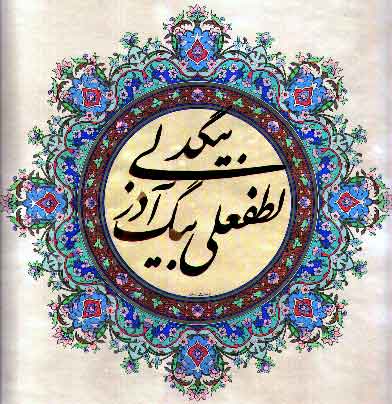 لطفعلی بیگ آذر
بیگدلی